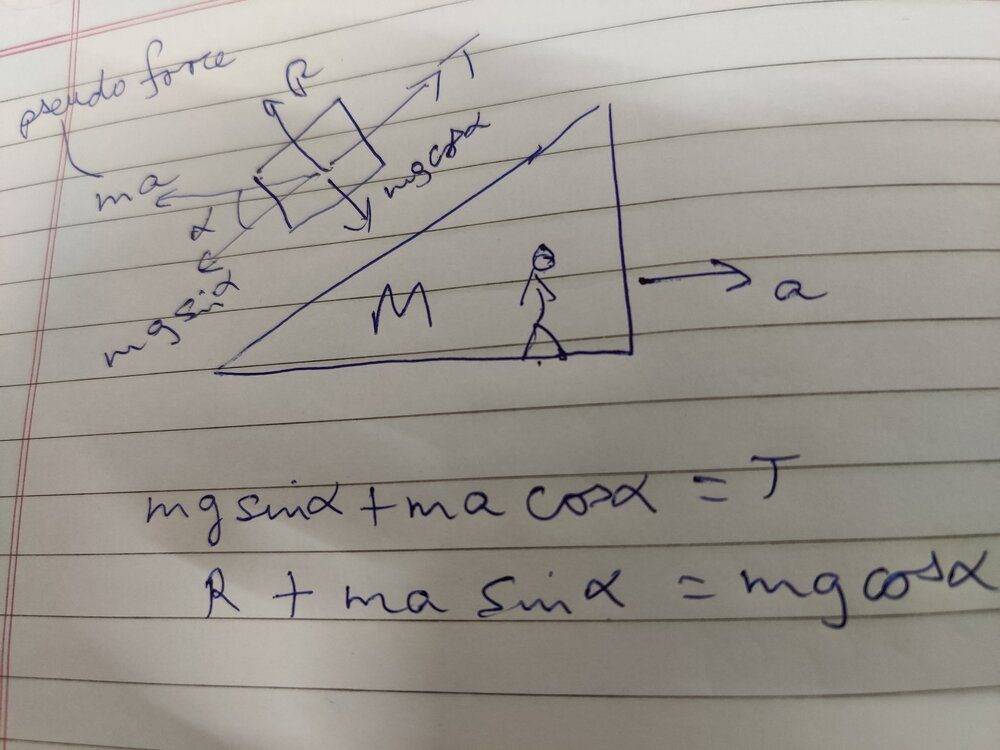 pseudo force
R
T
ma
mg cosα
α
mg sinα
M
a
mg sinα + ma cosα = T
R + ma sinα = mg cosα